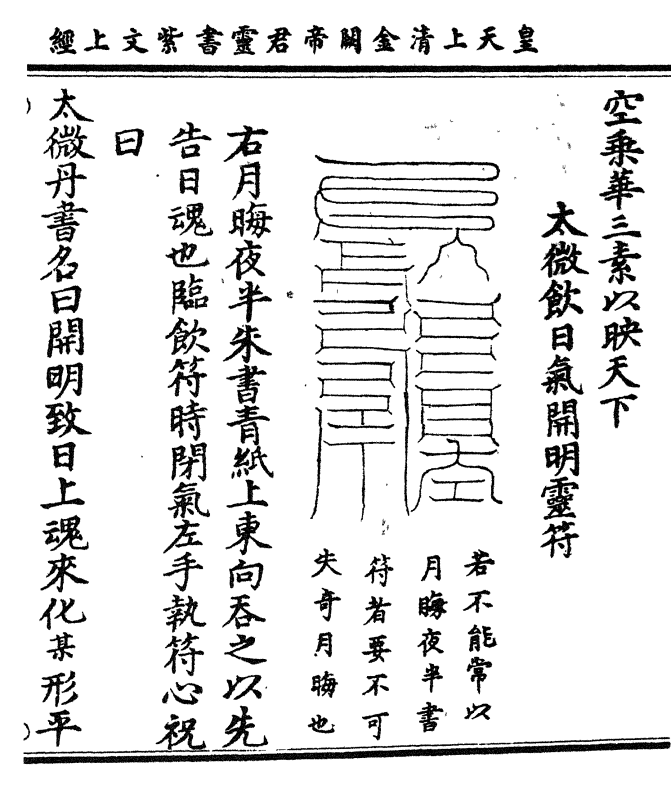 皇天上清金闕帝君靈書紫文上經
空乗華三素以映天下
太微飲日氣開明靈符
若不能常以
月晦夜半書
符者要不可
失奇月晦也
右月晦夜半朱書青紙上東向吞之以先
告日魂也臨飲符時閉氣左手執符心祝
曰
太微丹書名曰開明致日上魂來化某形平